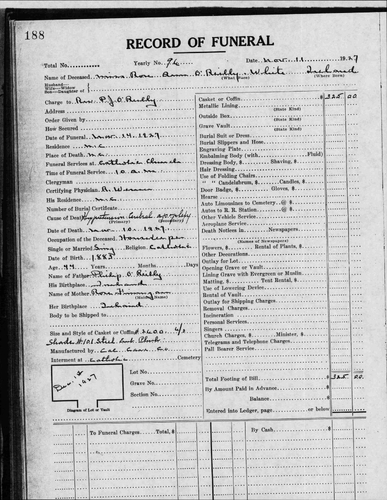 188
RECORD OF FUNERAL
Total No. Yearly No. 96 Date Nov. 11 1927
Name of Deceased Miss Rose Ann O'Reilly. White Ireland
(What Race) (Where Born)
Husband—
Wife—Widow
Son—Daughter of
Charge to Rev. P.J. O'Reilly
Address
Order Given by
How Secured
Date of Funeral Nov. 14. 1927
Residence M.C.
Place of Death
Funeral Services at Catholic Church
Time of Funeral Service 10 a.m.
Clergyman
Certifying Physician
His Residence M.C.
Number of Burial Certificate
Cause of Death
Date of Death Nov. 10. 1927.
Occupation of the Deceased Housekeeper
Single or Married Sing Religion Catholic
Date of Birth 1883
Age 44 Years Months Days
Name of Father Philip O'Reilly
His Birthplace Ireland
Name of Mother Rose
(Maiden Name)
Her Birthplace Ireland
Body to be Shipped to
Size and Style of Casket or Coffin
Manufactured by
Interment at Catholic Cemetery
Lot No.
Grave No.
Section No.
1927
Diagram of Lot or Vault
Casket or Coffin $ 325 00
Metallic Lining
(State Kind)
Outside Box
(State Kind)
Grave Vault
(State Kind)
Burial Suit or Dress
Burial Slippers and Hose
Engraving Plate
Embalming Body (with Fluid)
Dressing Body, $ Shaving, $
Hair Dressing
Use of Folding Chairs
" " Candelabrum, $ Candles, $
Door Badge, $ Gloves, $
Hearse
Auto Limousines to Cemetery @ $
Autos to R. R. Station @ $
Other Vehicle Service
Aeroplane Service
Death Notices in Newspapers
(Names of Newspapers)
Flowers, $ Rental of Plants, $
Other Decorations
Outlay for Lot
Opening Grave or Vault
Lining Grave with Evergreen or Muslin
Matting, $ Tent Rental, $
Use of Lowering Device
Rental of Vault
Outlay for Shipping Charges
Removal Charges
Incineration
Personal Services
Singers
Church Charges, $ Minister, $
Telegrams and Telephone Charges
Pall Bearer Service
Total Footing of Bill $ 325 00
By Amount Paid in Advance $
Balance $
Entered into Ledger, page or below
To Funeral Charges Total, $
By Cash $